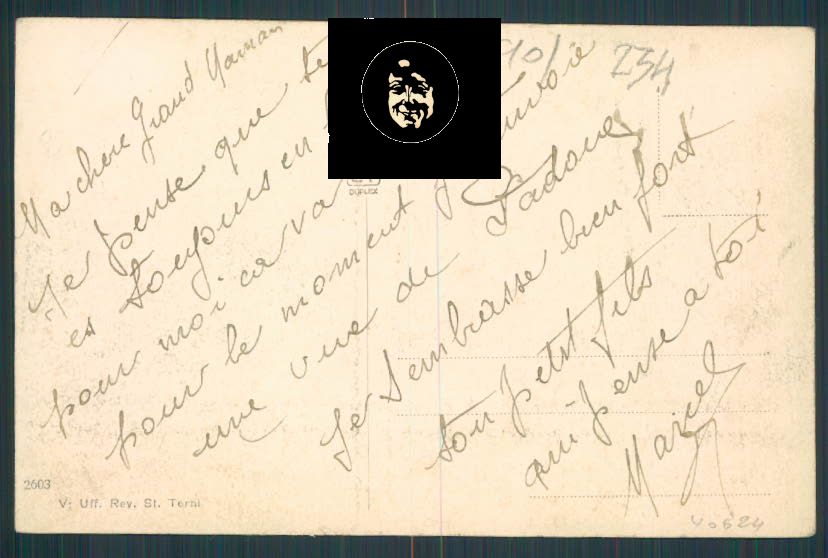 Ma chere Grand Maman
Je pense que te
es toujours en
pour moi ca va
pour le moment je t'envoie
une vue de Padoue
Je t'embrasse bien fort
ton petit fils
qui pense a toi
Marcel
90/
234
DUPLEX
2603
V; Uff. Rev. St. Terni
40624